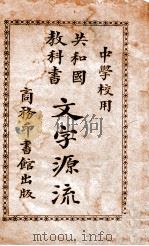 中學校用
共和國
教科書
文字源流
商務印書館出版
mtoou.info